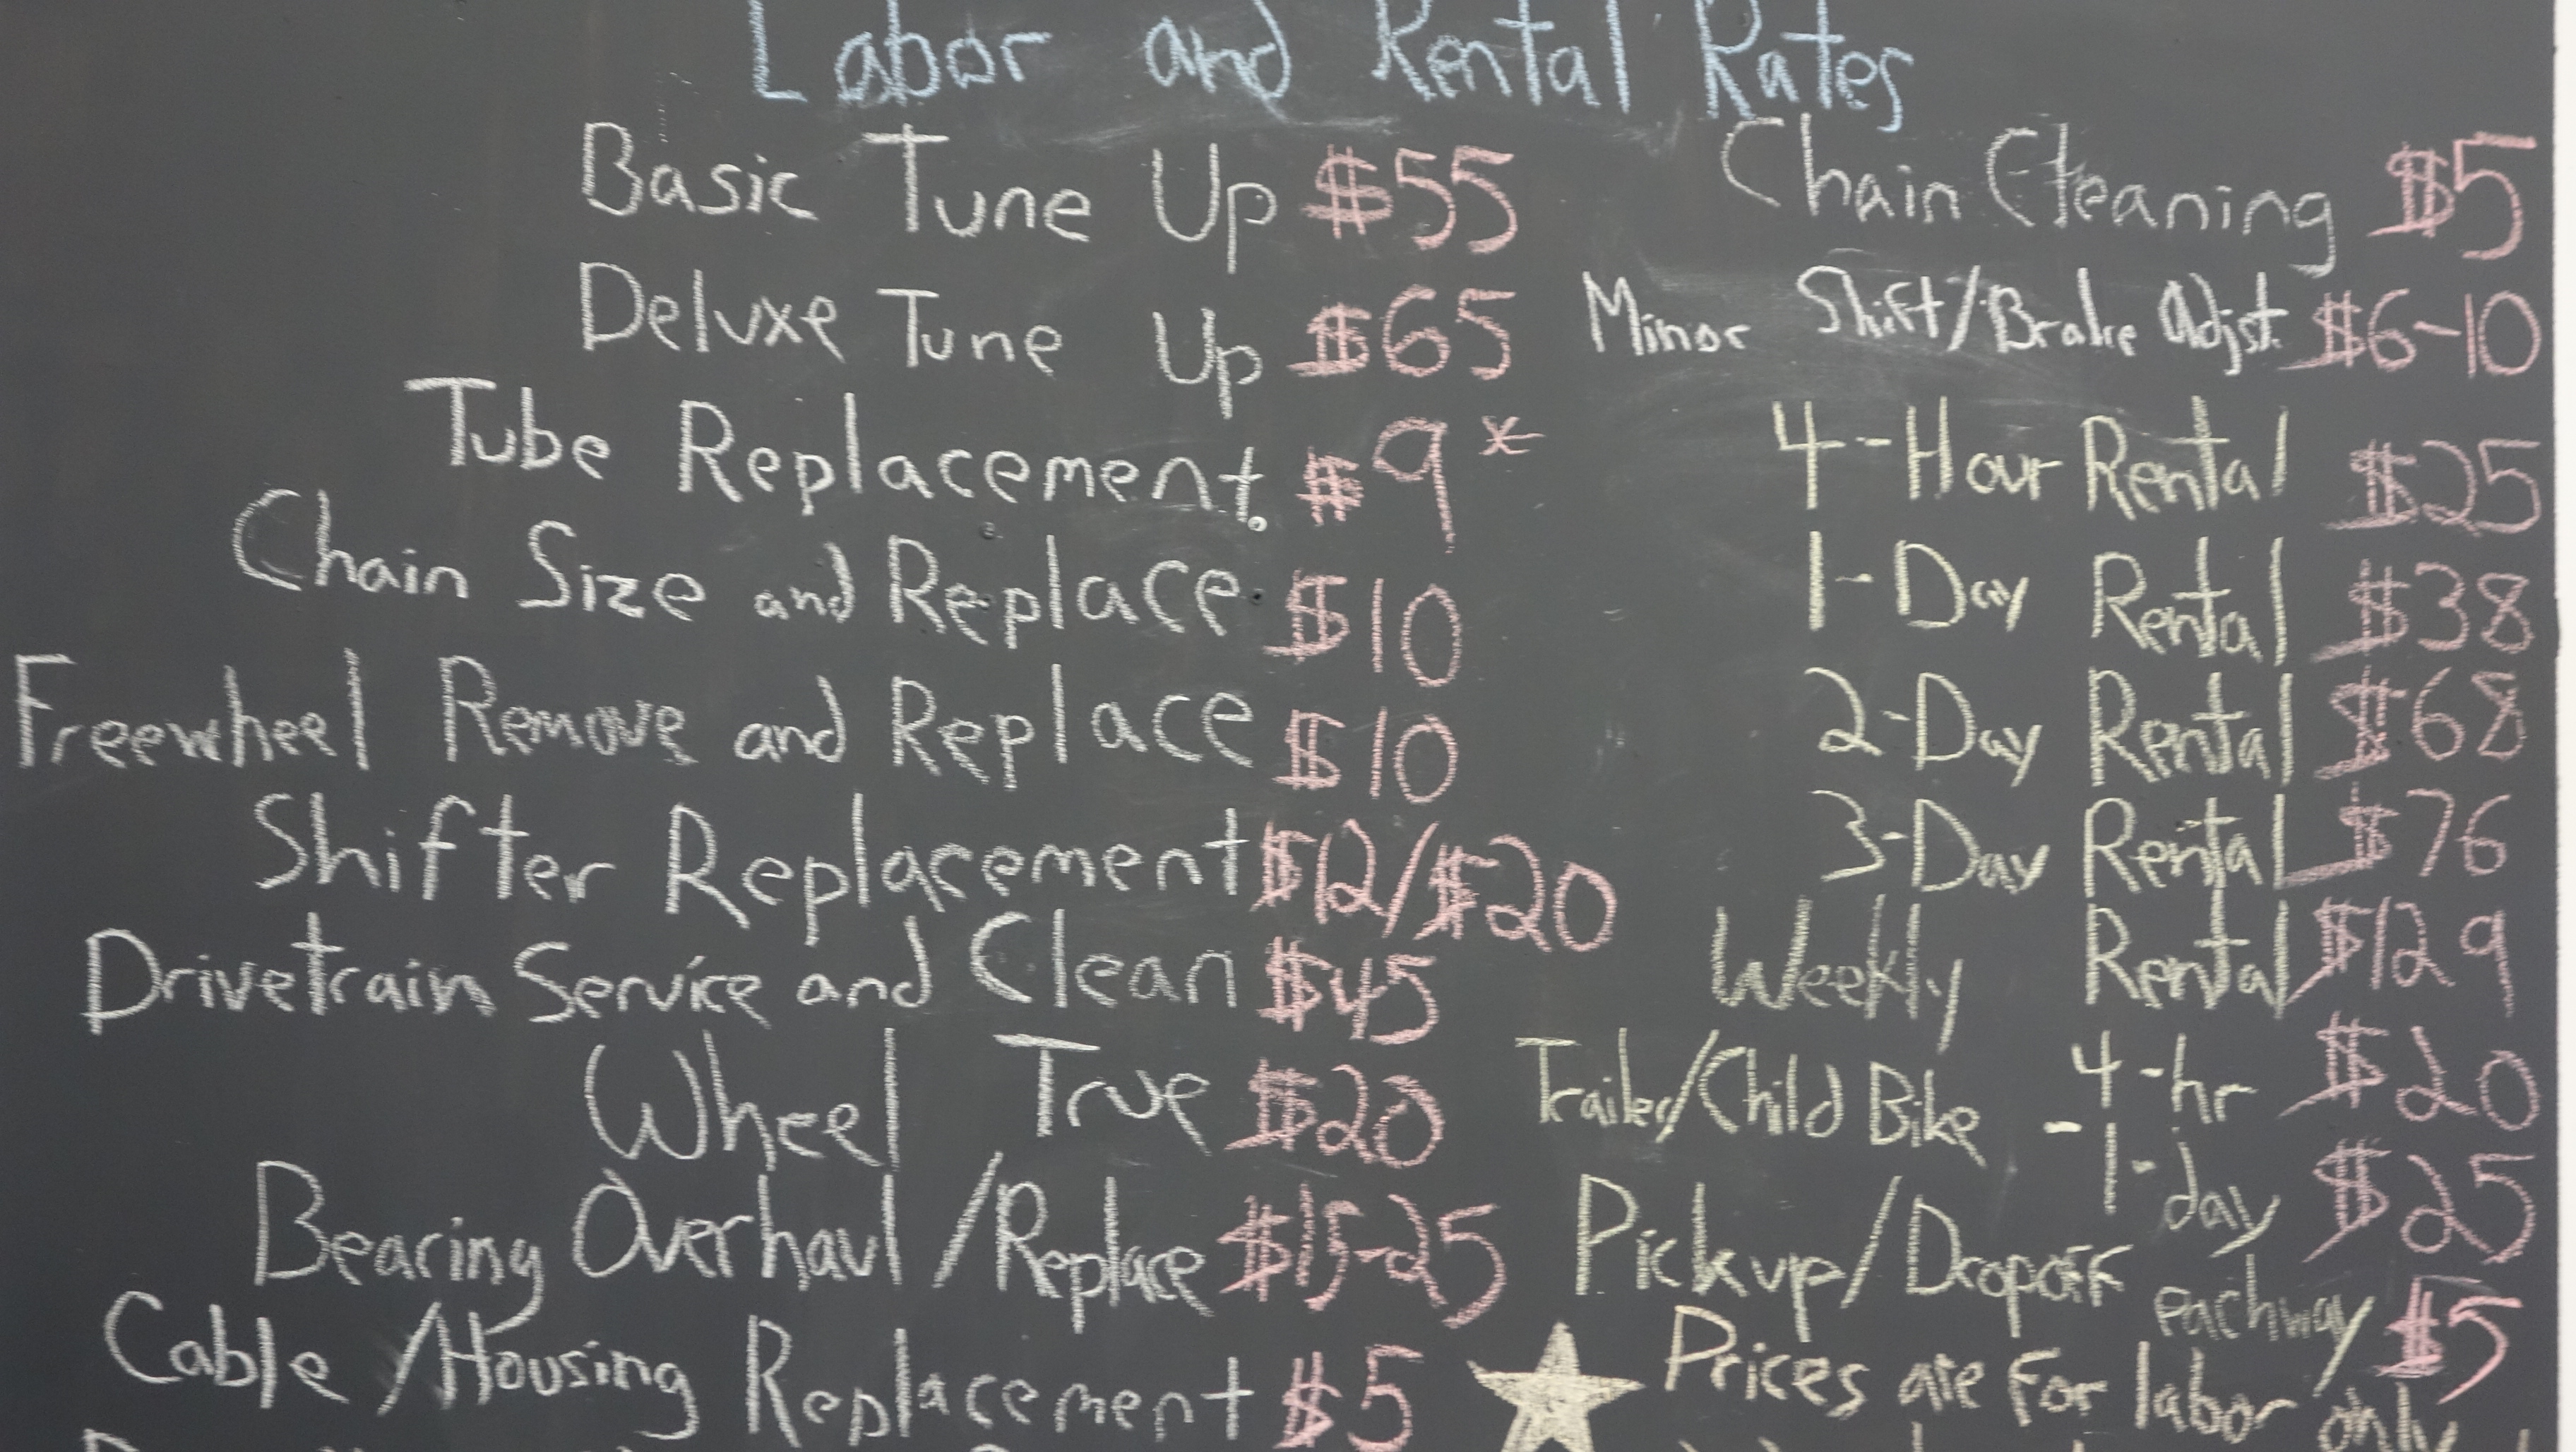 Labor and Rental Rates
Basic Tune Up $55
Deluxe Tune Up $65
Tube Replacement $9*
Chain Size and Replace $10
Freewheel Remove and Replace $10
Shifter Replacement $12/$20
Drivetrain Service and Clean $45
Wheel True $20
Bearing Overhaul/Replace $15-25
Cable/Housing Replacement $5
Chain Cleaning $5
Minor Shift/Brake Adjst. $6-10
4-Hour Rental $25
1-Day Rental $38
2-Day Rental $68
3-Day Rental $76
Weekly Rental $129
Trailer/Child Bike - 4-hr $20
1-day $25
Pickup/Dropoff each way $5
Prices are for labor only